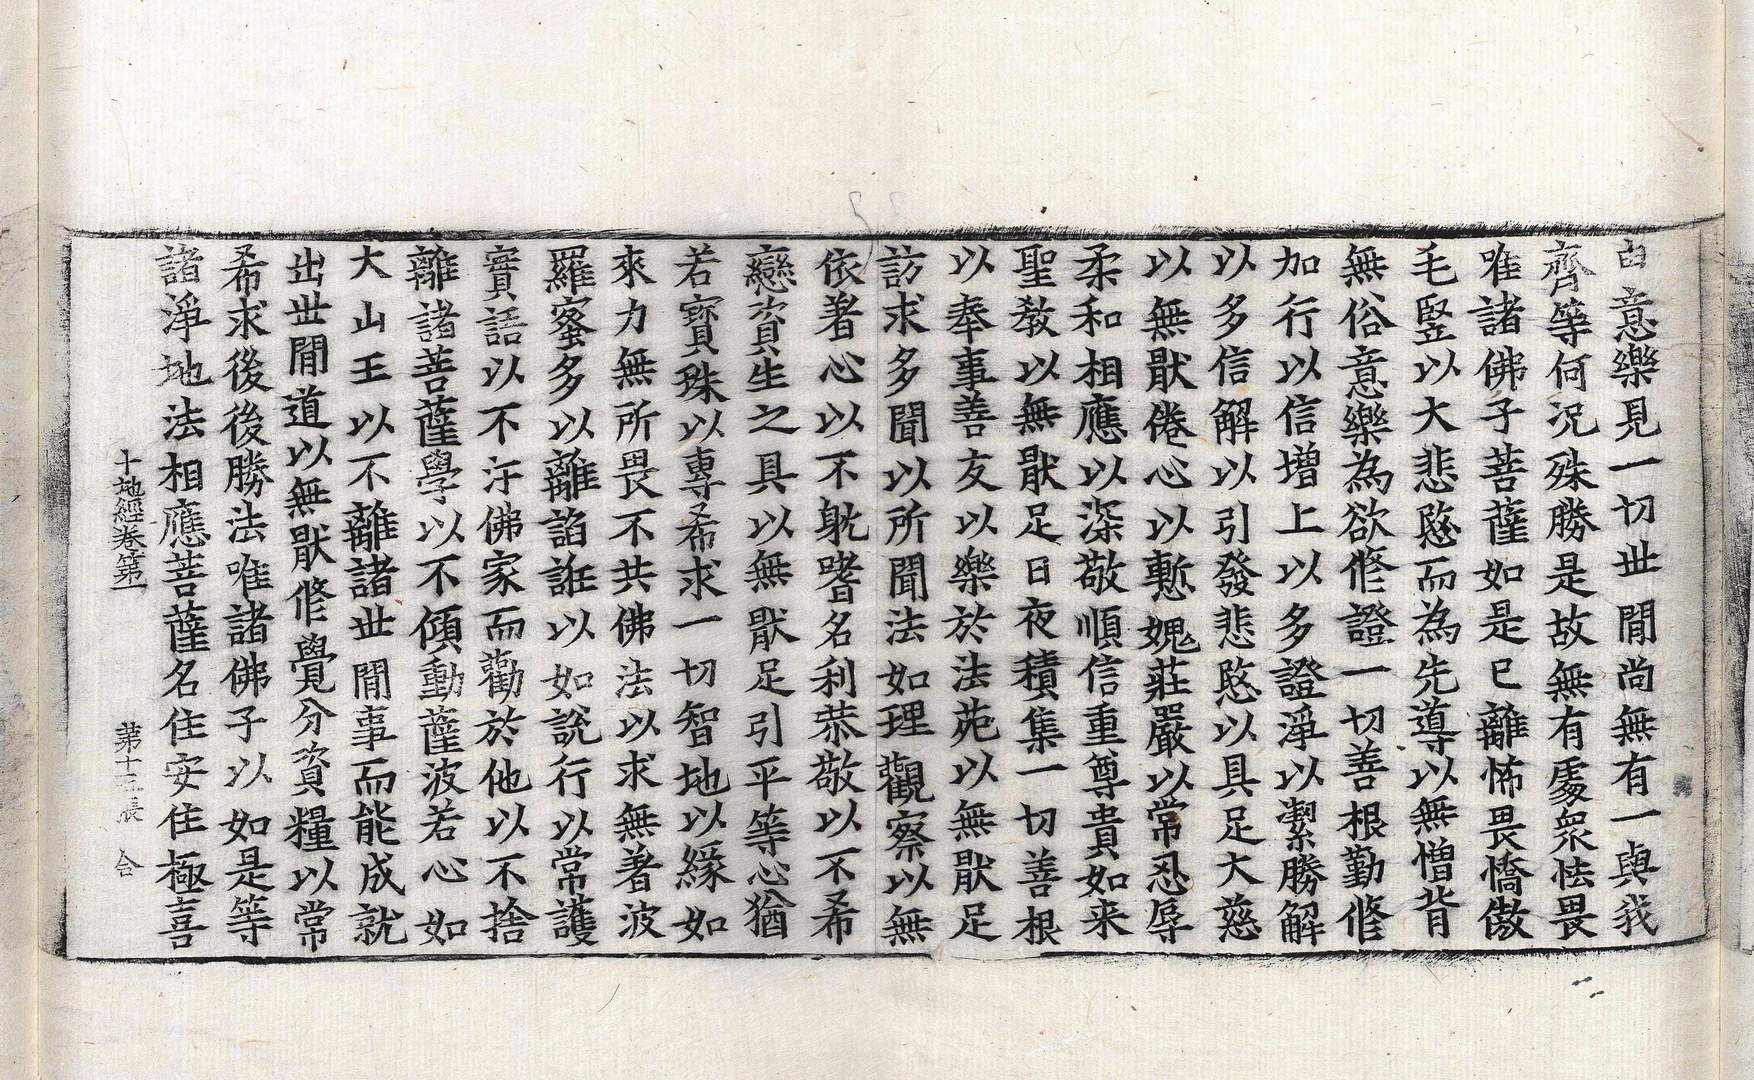 由意樂見一切世間尚無有一與我
齊等何況殊勝是故無有處衆怯畏
唯諸佛子菩薩如是已離怖畏憍傲
毛竪以大悲愍而為先導以無憎背
無俗意樂為欲修證一切善根勤修
加行以信增上以多證淨以潔勝解
以多信解以引發悲愍以具足大慈
以無猒倦心以慙愧莊嚴以常忍辱
柔和相應以深敬順信重尊貴如来
聖教以無猒足日夜積集一切善根
以奉事善友以樂於法苑以無猒足
訪求多聞以所聞法如理觀察以無
依著心以不躭嗜名利恭敬以不希
戀資生之具以無猒足引平等心猶
若寶珠以專希求一切智地以緣如
來力無所畏不共佛法以求無著波
羅蜜多以離諂誑以如說行以常護
實語以不汙佛家而勸於他以不捨
離諸菩薩學以不傾動薩波若心如
大山王以不離諸世間事而能成就
出世間道以無猒修覺分資糧以常
希求後後勝法唯諸佛子以如是等
諸淨地法相應菩薩名住安住極喜
十地經卷第一 第十三張 合